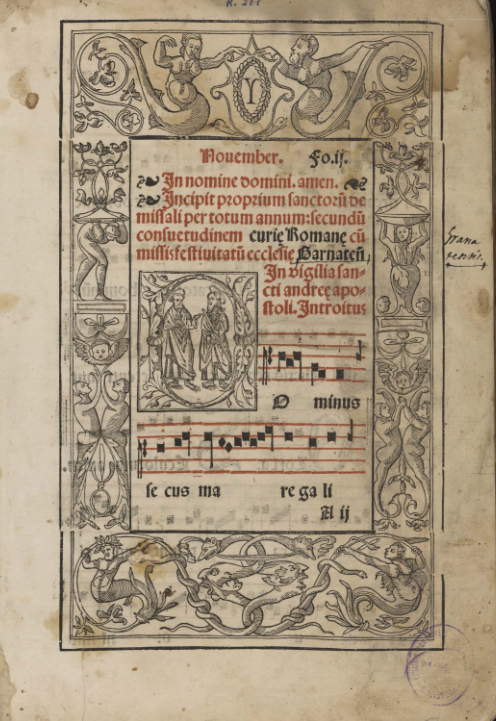 R. 261
Y
Nouember. Fo.ij.
In nomine domini. amen.
Incipit proprium sanctorũ de
missali per totum annum: secundũ
consuetudinem curię Romanę cũ
missis festiuitatũ ecclesię Garnateñ,
In vigilia san-
cti andreę apo-
stoli. Introitus
Grana
tensis.
O minus
se cus ma re ga li
A ij